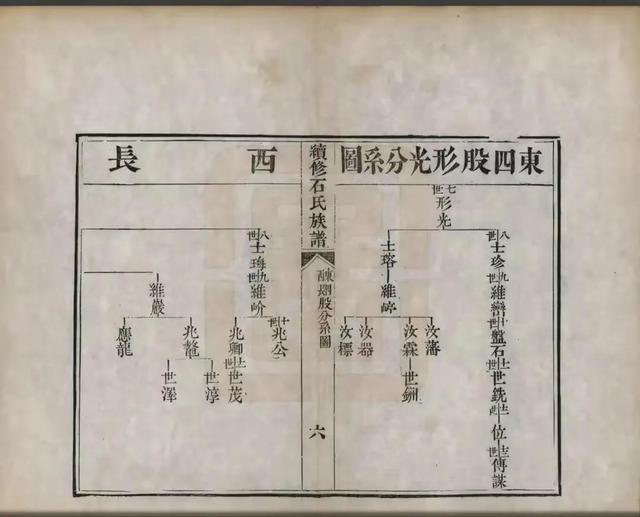 東四股形光分系圖
七世
形光
八世
士珍
九世
維巒
十世
盤石
十一世
世銑
十二世
位
十三世
傳謀
士璿
維嶂
汝藩
汝霖
世鉶
汝器
汝標
續修石氏族譜
分系圖
六
西
長
八世
士珻
九世
維岎
十世
兆公
兆卿
十一世
世茂
維嚴
兆鼇
世淳
世澤
應龍